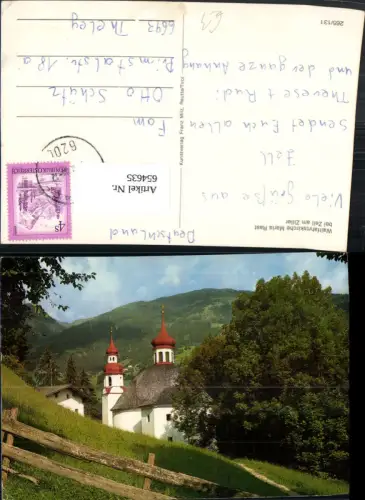 265/131
Wallfahrtskirche Maria Rast
bei Zell am Ziller
Viele Grüße aus
Zell
Sendet Euch allen
Therese + Rudi
und der ganze Anhang
Kunstverlag Franz Milz, Reutte/Tirol
Fam
Otto Schütz
Primstalstr. 18a
6693 Theley
Deutschland
6201
REPUBLIK ÖSTERREICH
4 S
Artikel Nr.
654635